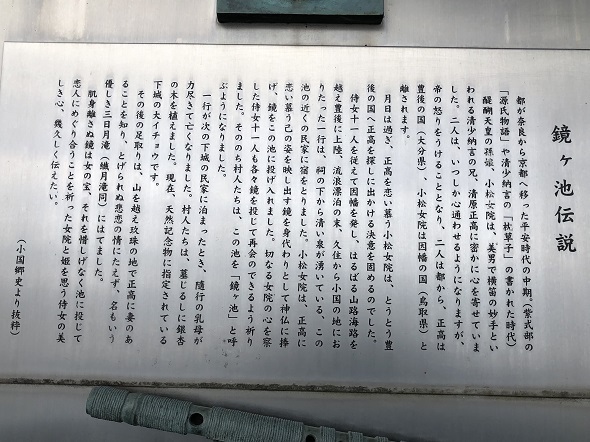 鏡ヶ池伝説
都が奈良から京都へ移った平安時代の中期、(紫式部の
「源氏物語」や清少納言の「枕草子」の書かれた時代)
醍醐天皇の孫娘、小松女院は、美男で横笛の妙手とい
われる清少納言の兄、清原正高に密かに心を寄せていま
した。二人は、いつしか心通わせるようになりますが、
帝の怒りをうけることとなり、二人は都から、正高は
豊後の国(大分県)、小松女院は因幡の国(鳥取県)と
離されます。
月日は過ぎ、正高を恋い慕う小松女院は、とうとう豊
後の国へ正高を探しに出かける決意を固めるのでした。
侍女十一人を従えて因幡を発し、はるばる山路海路を
越え豊後に上陸、流浪漂泊の末、久住から小国の地にお
りたった一行は、祠の下から清い泉が湧いている、この
池の近くの民家に宿をとりました。小松女院は、正高に
恋い慕う己の姿を映し出す鏡を身代わりとして神仏に捧
げ、鏡をこの池に投げ入れました。切なる女院の心を察
した侍女十一人も各々鏡を投じて再会のできるよう祈り
ました。そののち村人たちは、この池を「鏡ヶ池」と呼
ぶようになりました。
一行が次の下城の民家に泊まったとき、随行の乳母が
力尽きて亡くなりました。村人たちは、墓じるしに銀杏
の木を植えました。現在、天然記念物に指定されている
下城の大イチョウです。
その後の足取りは、山を越え玖珠の地で正高に妻のあ
ることを知り、とげられぬ悲恋の情にたえず、名もいう
優しき三日月滝(繊月滝同)にはてました。
肌身離さぬ鏡は女の宝、それを惜しげなく池に投じて
恋人にめぐり合うことを祈った女院と姫を思う侍女の美
しき心、幾久しく伝えたい。
(小国郷史より抜粋)